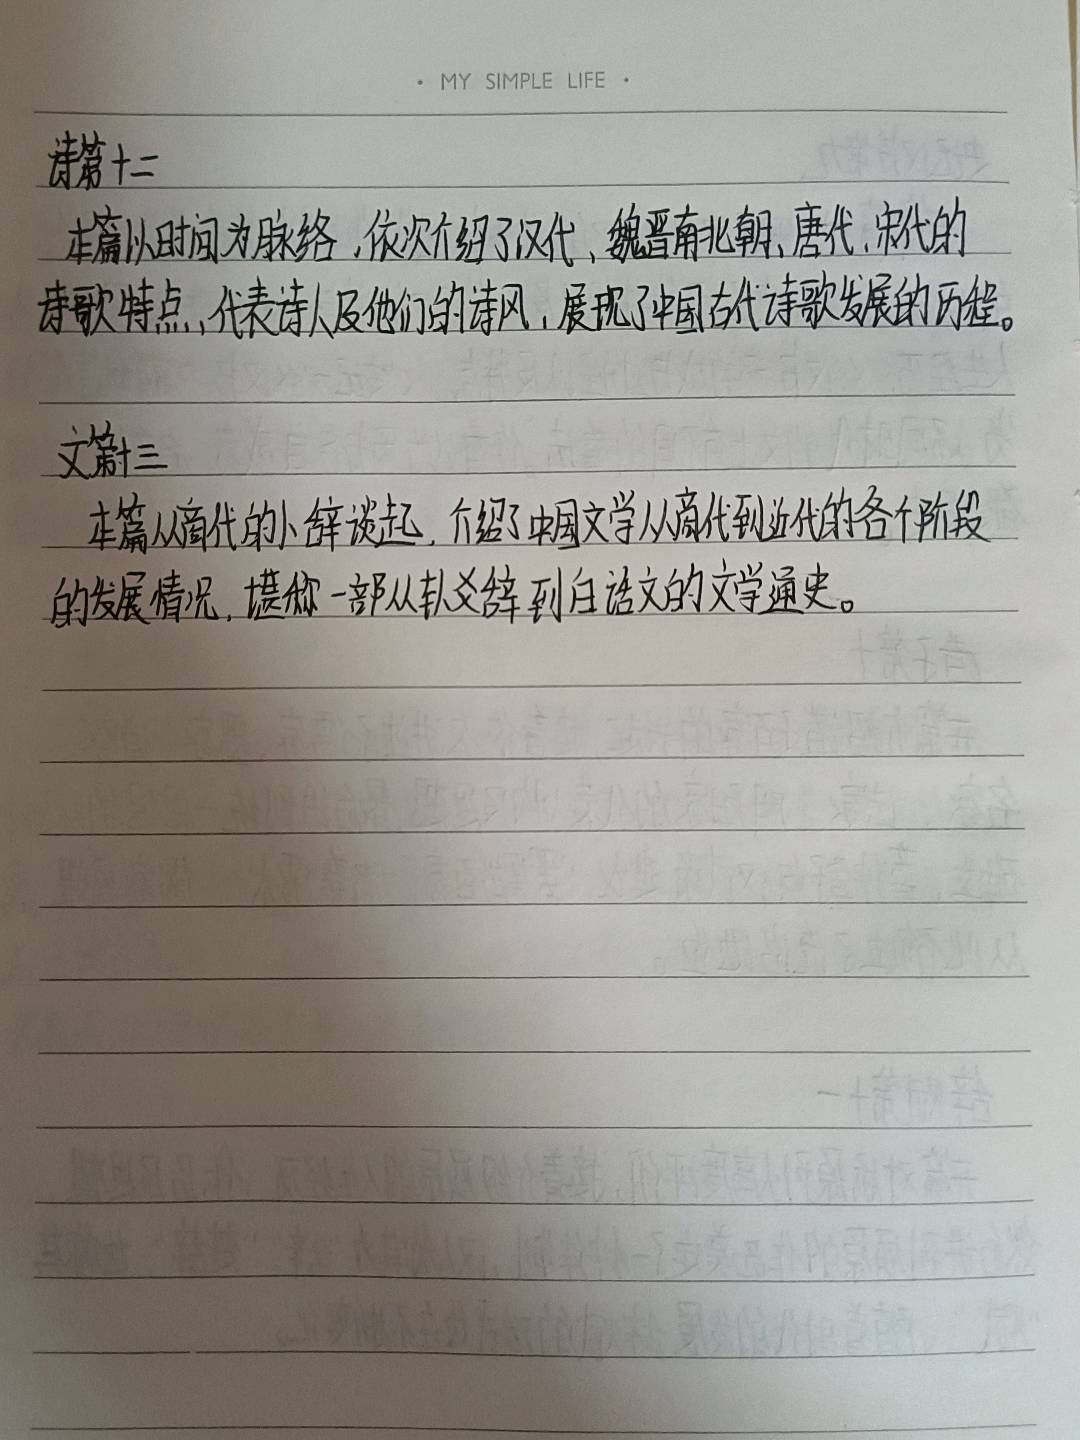 · MY SIMPLE LIFE ·
诗第十二
本篇以时间为脉络，依次介绍了汉代、魏晋南北朝、唐代、宋代的
诗歌特点，代表诗人及他们的诗风，展现了中国古代诗歌发展的历程。
文第十三
本篇从商代的卜辞谈起，介绍了中国文学从商代到近代的各个阶段
的发展情况，堪称一部从卦爻辞到白话文的文学通史。